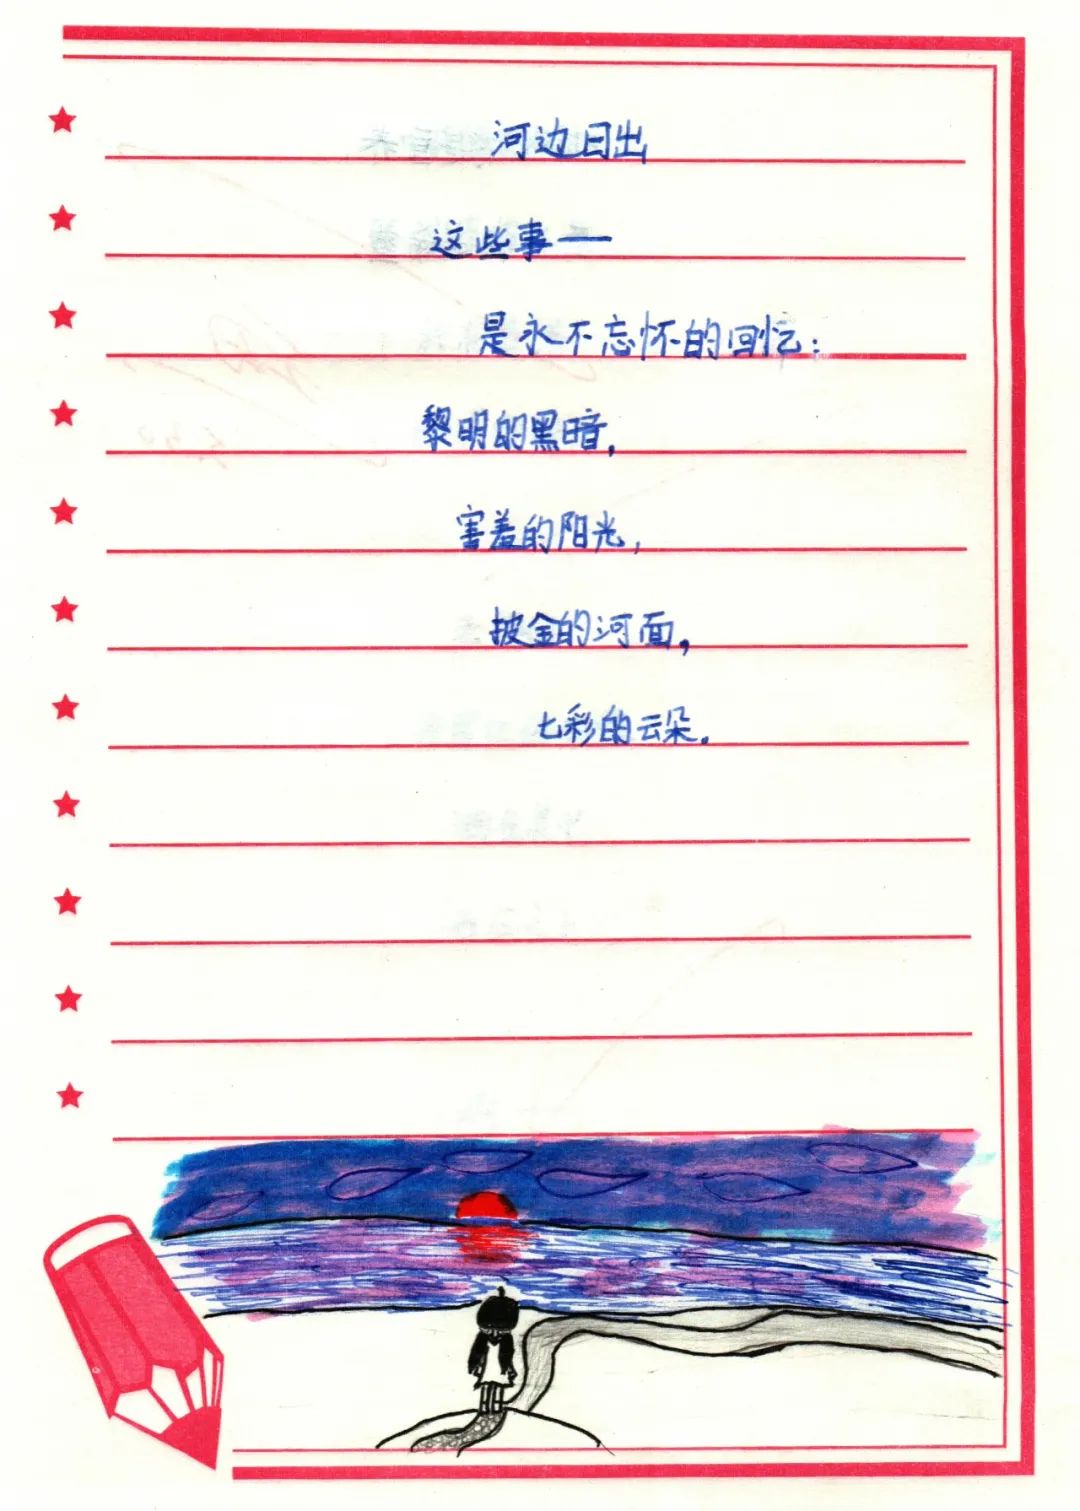 河边日出
这些事——
是永不忘怀的回忆：
黎明的黑暗，
害羞的阳光，
披金的河面，
七彩的云朵。